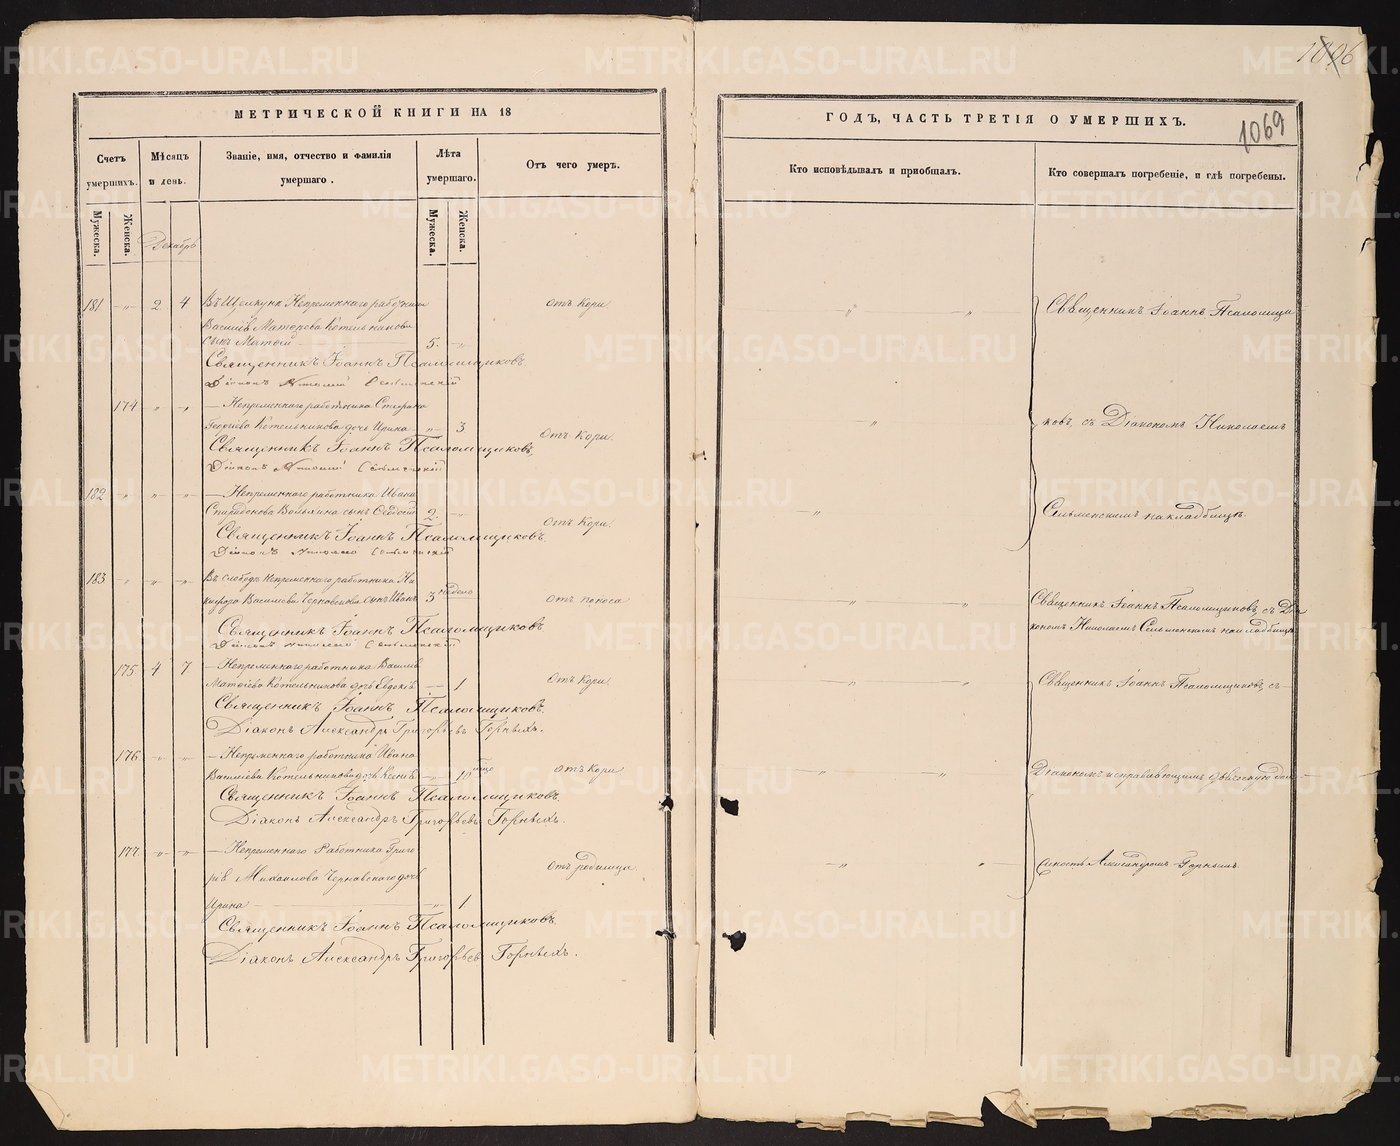 МЕТРИЧЕСКОЙ КНИГИ НА 18
Счетъ умершихъ.
Мужеска.
Женска.
Мѣсяцъ и день.
Званіе, имя, отчество и фамилія умершаго.
Лѣта умершаго.
Мужеска.
Женска.
Отъ чего умеръ.
Декабрь
181 „ 2. 4 Въ Щелкунѣ Непременнаго работника
Василія Матѳеева Котельникова
сынъ Матѳей 5. „ отъ Кори
Священникъ Іоаннъ Псаломщиковъ
Діаконъ Николай Сельменскій
174 „ „ — Непременнаго работника Стефана
Георгіева Котельникова дочь Ирина „ 3 Отъ Кори.
Священникъ Іоаннъ Псаломщиковъ.
Діаконъ Николай Сельменскій
182 „ „ „ — Непременнаго работника Ивана
Спиридонова сынъ Ѳеодосій 2. „ Отъ Кори.
Священникъ Іоаннъ Псаломщиковъ.
Діаконъ Николай Сельменскій
183 „ „ „ Въ слободѣ Непременнаго работника Ни-
кифора Василіева сынъ Иванъ 3 недели Отъ поноса
Священникъ Іоаннъ Псаломщиковъ.
Діаконъ Николай Сельменскій
175 4 7 — Непременнаго работника Василія
Матѳеева Котельникова дочь Евдокія „ 1 Отъ Кори
Священникъ Іоаннъ Псаломщиковъ.
Діаконъ Александръ Григорьевъ Горныхъ.
176 „ „ — Непременнаго работника Ивана
Василіева Котельникова дочь „ 10 Отъ Кори
Священникъ Іоаннъ Псаломщиковъ.
Діаконъ Александръ Григорьевъ Горныхъ.
177 „ „ — Непременнаго Работника Григо-
рія Михайлова Чернавскаго дочь Отъ родимца
Ирина „ 1.
Священникъ Іоаннъ Псаломщиковъ.
Діаконъ Александръ Григорьевъ Горныхъ.
1069
ГОДЪ, ЧАСТЬ ТРЕТІЯ О УМЕРШИХЪ.
Кто исповѣдывалъ и пріобщалъ.
Кто совершалъ погребеніе, и гдѣ погребены.
„ „ Священникъ Іоаннъ Псаломщи-
„ ковъ, съ Діакономъ Николаемъ
„ Сельменскимъ на кладбищѣ.
„ „ Священникъ Іоаннъ Псаломщиковъ, съ Діа-
кономъ Николаемъ Сельменскимъ на кладбищѣ
„ „ Священникъ Іоаннъ Псаломщиковъ, съ —
„ „ Діакономъ исправляющимъ
„ „ Александромъ Горнымъ.
METRIKI.GASO-URAL.RU